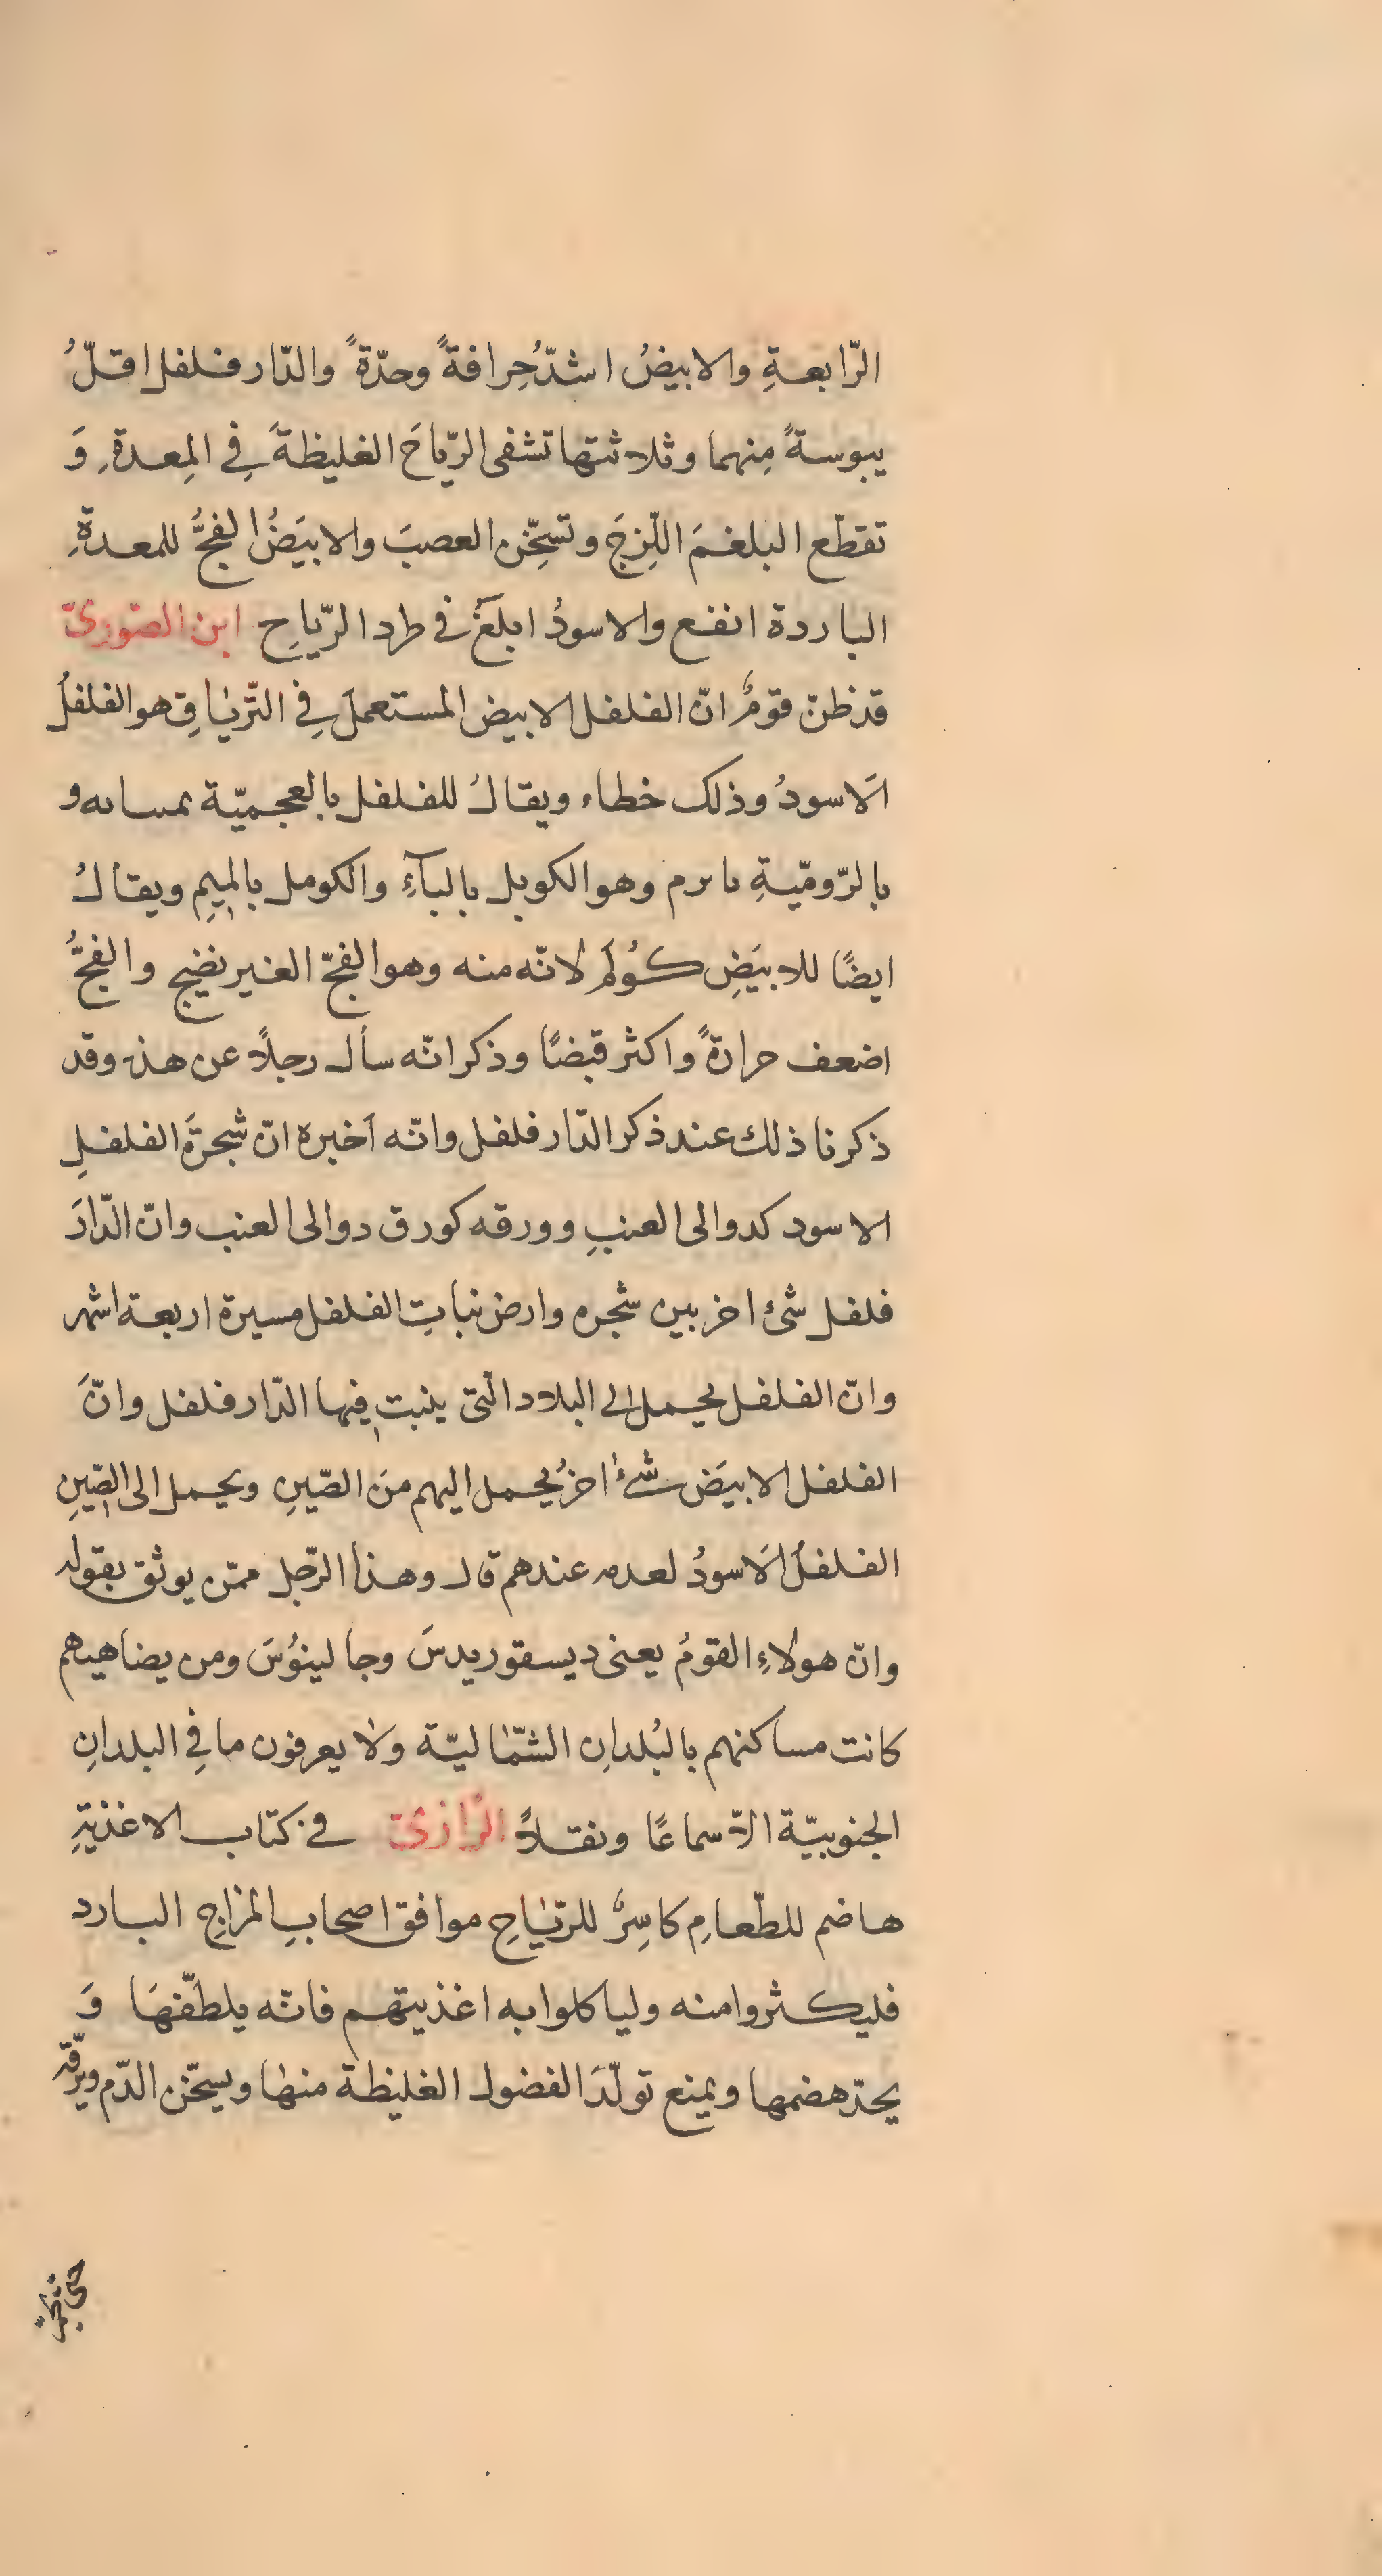 الرّابعةِ والابيضُ اشدّ حِرافةً وحدّةً والدّارفلفل اقلّ
يبوسةً مِنهما وثلاثتها تشفى الرّياحَ الغليظةَ فِى المِعدةِ وَ
تقطّع البلغمَ اللّزِجَ وتسخِّن العصبَ والابيَضُ الفجُّ للمعدةِ
الباردة انفع والاسودُ ابلغُ فى طرد الرّياحِ ابن الصّورىّ
قد ظنّ قومٌ انّ الفلفل الابيض المستعملَ فِى التّرياقِ هو الفلفلُ
الَاسودُ وذلك خطاء ويقالُ للفلفل بالعجميّة و
بالرّوميّةِ وهو الكوبل بالبآءِ والكومل بالمِيمِ ويقالُ
ايضًا للابيَضِ كُولَم لانّه منه وهو الفجّ الغير نضيج والفجُّ
اضعف حرارةً واكثر قبضًا وذكر انّه سأل رجلاً عن هذه وقد
ذكرنا ذلك عند ذكر الدّارفلفل وانّه اَخبره انّ شجرَة الفلفلِ
الاسود كدوالى العنبِ وورقه كورق دوالى العنب وانّ الدّارَ
فلفل شئ اخر بين شجره وارض نباتِ الفلفل مسيرة اربعة اشهر
وانّ الفلفل يحمل الى البلاد الّتى ينبت فيها الدّارفلفل وانّ
الفلفل الابيَض شئٌ اخرُ يحمل اليهم منَ الصّينِ ويحمل الى الصّينِ
الفلفلُ الَاسودُ لعدمه عندهم قال وهذا الرّجل ممّن يوثق بقوله
وانّ هولاءِ القومُ يعنى ديسقوريدسَ وجالينوُسَ ومن يضاهيهم
كانت مساكنهم بالبُلدانِ الشّماليّة ولا يعرفون ما فِى البلدانِ
الجنوبيّة الّا سماعًا ونقلاً الرّازىّ فى كتاب الاغذيةِ
هاضم للطّعامِ كاسِرٌ للرّياحِ موافق اصحابِ المزاجِ البارد
فليكثروا منه ولياكلوا به اغذيتهم فانّه يلطّفهَا وَ
يحدّ هضمها ويمنع تولّدَ الفضول الغليظة منها ويسخّن الدّم ويرقّه
حتى